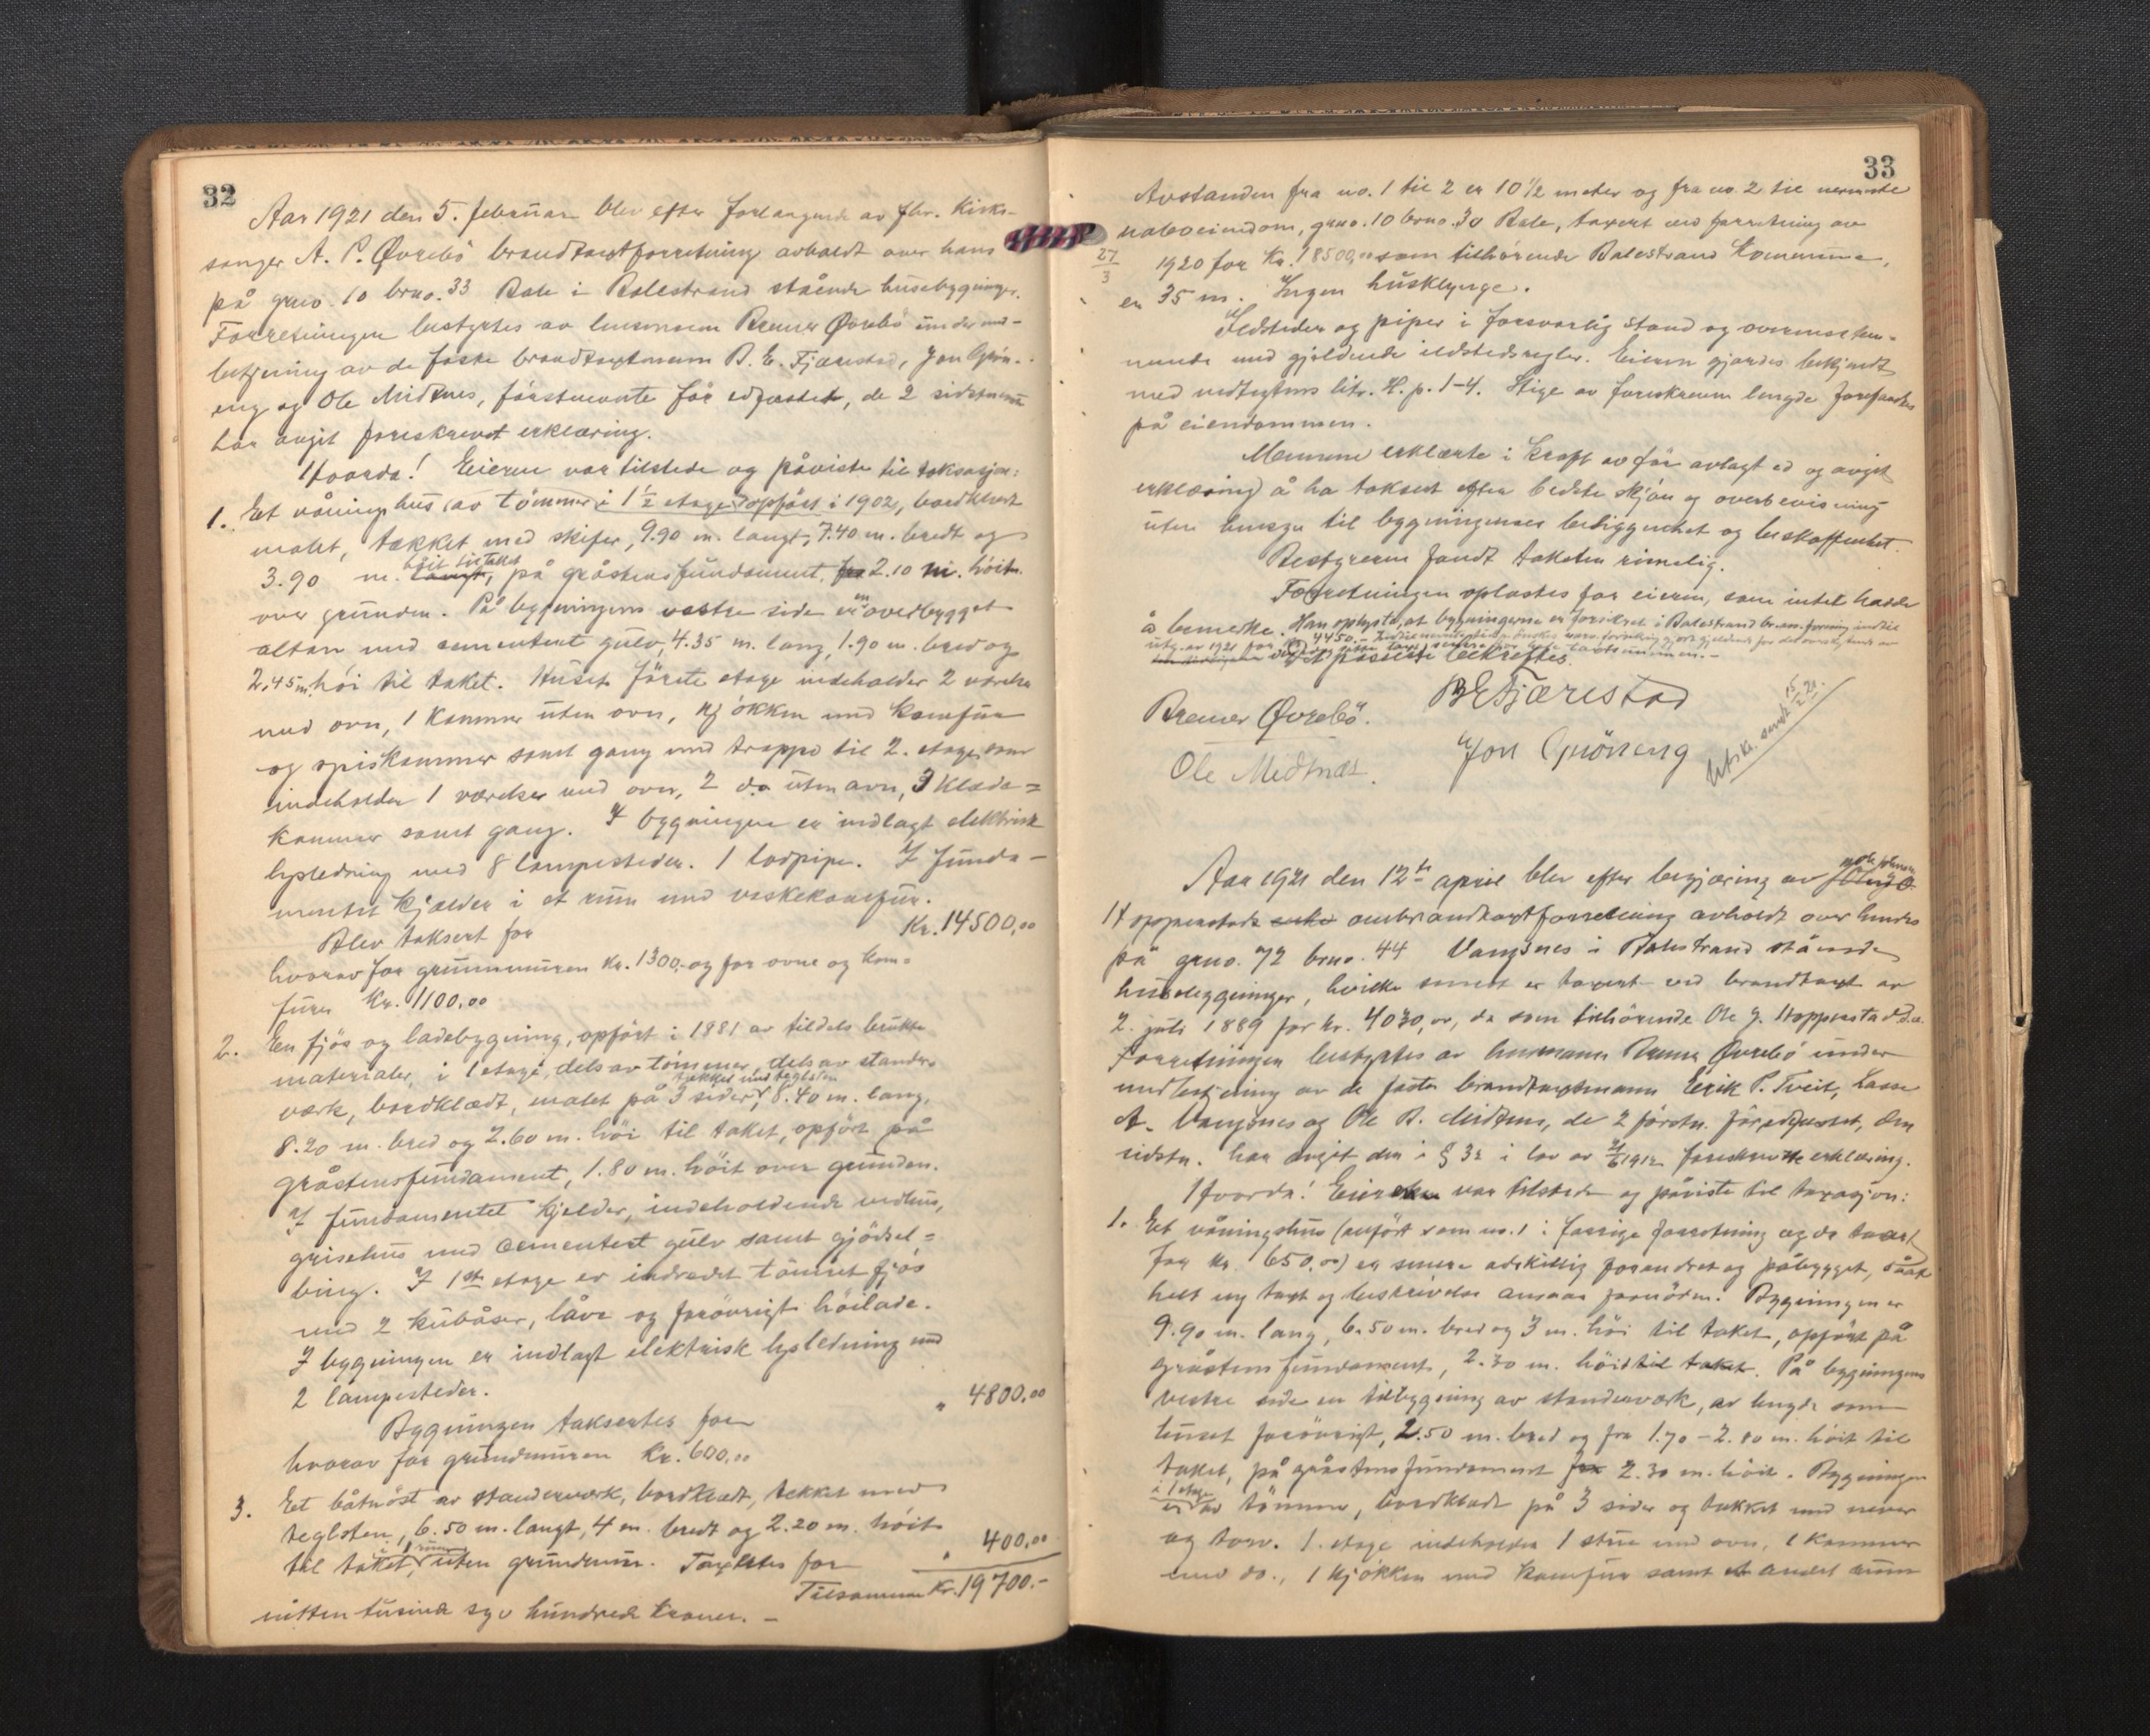 32
Aar 1921 den 5. februar blev efter forlangende av fhv. kirke-
sanger A. P. Øvrebö brandtaxtforretning avholdt over hans
på gno. 10 bno. 33 Bale i Balestrand stående husebygninger.
Forretningen bestyrtes av lensmann Bremer Øvrebö under med-
betjening av de faste brandtaxtmenn B. E. Fjærestad, Jon Grön-
eng og Ole Midtnes, förstnevnte för edfæstet, de 2 sidstnevnte
har avgit foreskrevet erklæring.
Hvorda! Eieren var tilstede og påviste til taksasjon:
1. Et våningshus (av tömmer i 1 1/2 etage) opfört i 1902, bordklædt
malet, tækket med skifer, 9.90 m. langt, 7.40 m. bredt og
3.90 m. langt, höit til taket på gråstensfundament, fra 2.10 m. höit
over grunden. På bygningens vestre side er en overbygget
altan med cementert gulv, 4.35 m. lang, 1.90 m. bred og
2.45 m. höi til taket. Husets förste etage indeholder 2 værelser
med ovn, 1 kammer uten ovn, kjökken med komfur
og spiskammer samt gang med trappe til 2. etage, som
indeholder 1 værelse med ovn, 2 do uten ovn, 3 klæde-
kammer samt gang. I bygningen er indlagt elektrisk
lysledning med 8 lampesteder. 1 lodpipe. I funda-
mentet kjelder i et rum med vaskekomfur.
Blev taksert for Kr. 14500,00
hvorav for grunnmuren Kr. 1300,- og for ovne og kom-
furer Kr. 1100.00
2. En fjös og ladebygning, opfört i 1881 av tildels brukte
materialer, i 1 etage, dels av tömmer, dels av stender-
værk, bordklædt, malet på 3 sider, tækket med teglsten, 8.40 m. lang,
8.20 m. bred og 2.60 m. höi til taket, opfört på
gråstensfundament, 1.80 m. höit over grunden.
I fundamentet kjelder, indeholdende vedhus,
grisehus med cementert gulv samt gjödsel-
bing. I 1ste etage er indredet tömret fjös
med 2 kubåser, låve og forövrigt höilade.
I bygningen er indlagt elektrisk lysledning med
2 lampesteder.
Bygningen taksertes for " 4800.00
hvorav for grundmuren Kr. 600,00
3. Et båtnöst av stenderværk, bordklædt, tekket med
teglsten, 6.50 m. langt, 4 m. bredt og 2.20 m. höit
til taket, i 1 rum uten grundmur. Taxertes for " 400.00
Tilsammen Kr. 19700.-
nitten tusinde syv hundrede kroner. -
33
Avstanden fra no. 1 til 2 er 10 1/2 meter og fra no. 2 til nermeste
naboeiendom, gno. 10 bno. 30 Bale, taxert ved forretning av
27/3 1920 for Kr. 18500,00 som tilhörende Balestrand Kommune,
er 35 m. Ingen husklynge.
Ildsteder og piper i forsvarlig stand og overensstem-
mende med gjeldende ildstedsregler. Eieren gjordes bekjendt
med vedtektenes litr. H. p. 1-4. Stige av foreskreven lengde forefandtes
på eiendommen.
Mennene erklærte i kraft av för avlagt ed og avgit
erklæring å ha taksert efter bedste skjön og overbevisning
uten hensyn til bygningenes beliggenhet og beskaffenhet.
Bestyreren fandt taksten rimelig.
Forretningen oplæstes for eieren, som intet hadde
å bemerke. Han oplyste, at bygningerne er forsikret i Balestrand br.ass.forening indtil
utg. av 1921 for 4450.-
Det passerte bekreftes.
Bremer Øvrebö. B E Fjærestad
Ole Midtnæs. Jon Gröneng
Utskr. sendt 15/2 21.
Aar 1921 den 12te april blev efter begjæring av
Hoppenstads enke ombrandtaxtforretning avholdt over hendes
på gno. 72 bno. 44 Vangsnes i Balestrand stående
husebygninger, hvilke senest er taxert ved brandtaxt av
2. juli 1889 for kr. 4030,00, da som tilhörende Ole J. Hoppenstad d.e.
Forretningen bestyrtes av lensmann Bremer Øvrebö under
medbetjening av de faste brandtaxtmenn Eirik P. Tveit, Lasse
A. Vangsnes og Ole B. Midtnes, de 2 förstn. för edfæstet, den
sidstn. har avgit den i § 32 i lov av 1912 foreskrevne erklæring.
Hvorda! Eiersken var tilstede og påviste til taxasjon:
1. Et våningshus (anfört som no. 1 i forrige forretning og da taxert
for kr. 650,00) er senere adskillig forandret og påbygget, såat
helt ny taxt og beskrivelse ansaaes fornöden. Bygningen er
9.90 m. lang, 6.50 m. bred og 3 m. höi til taket, opfört på
gråstensfundament, 2.30 m. höit til taket. På bygningens
vestre side en tilbygning av stenderværk, av lengde som
huset forövrigt, 2.50 m. bred og fra 1.70 - 2.80 m. höit til
taket, på gråstensfundament fra 2.30 m. höit. Bygningen
er i 1 etage av tömmer, bordklædt på 3 sider og tækket med never
og torv. 1. etage indeholder 1 stue med ovn, 1 kammer
med do., 1 kjökken med komfur samt et andet rum